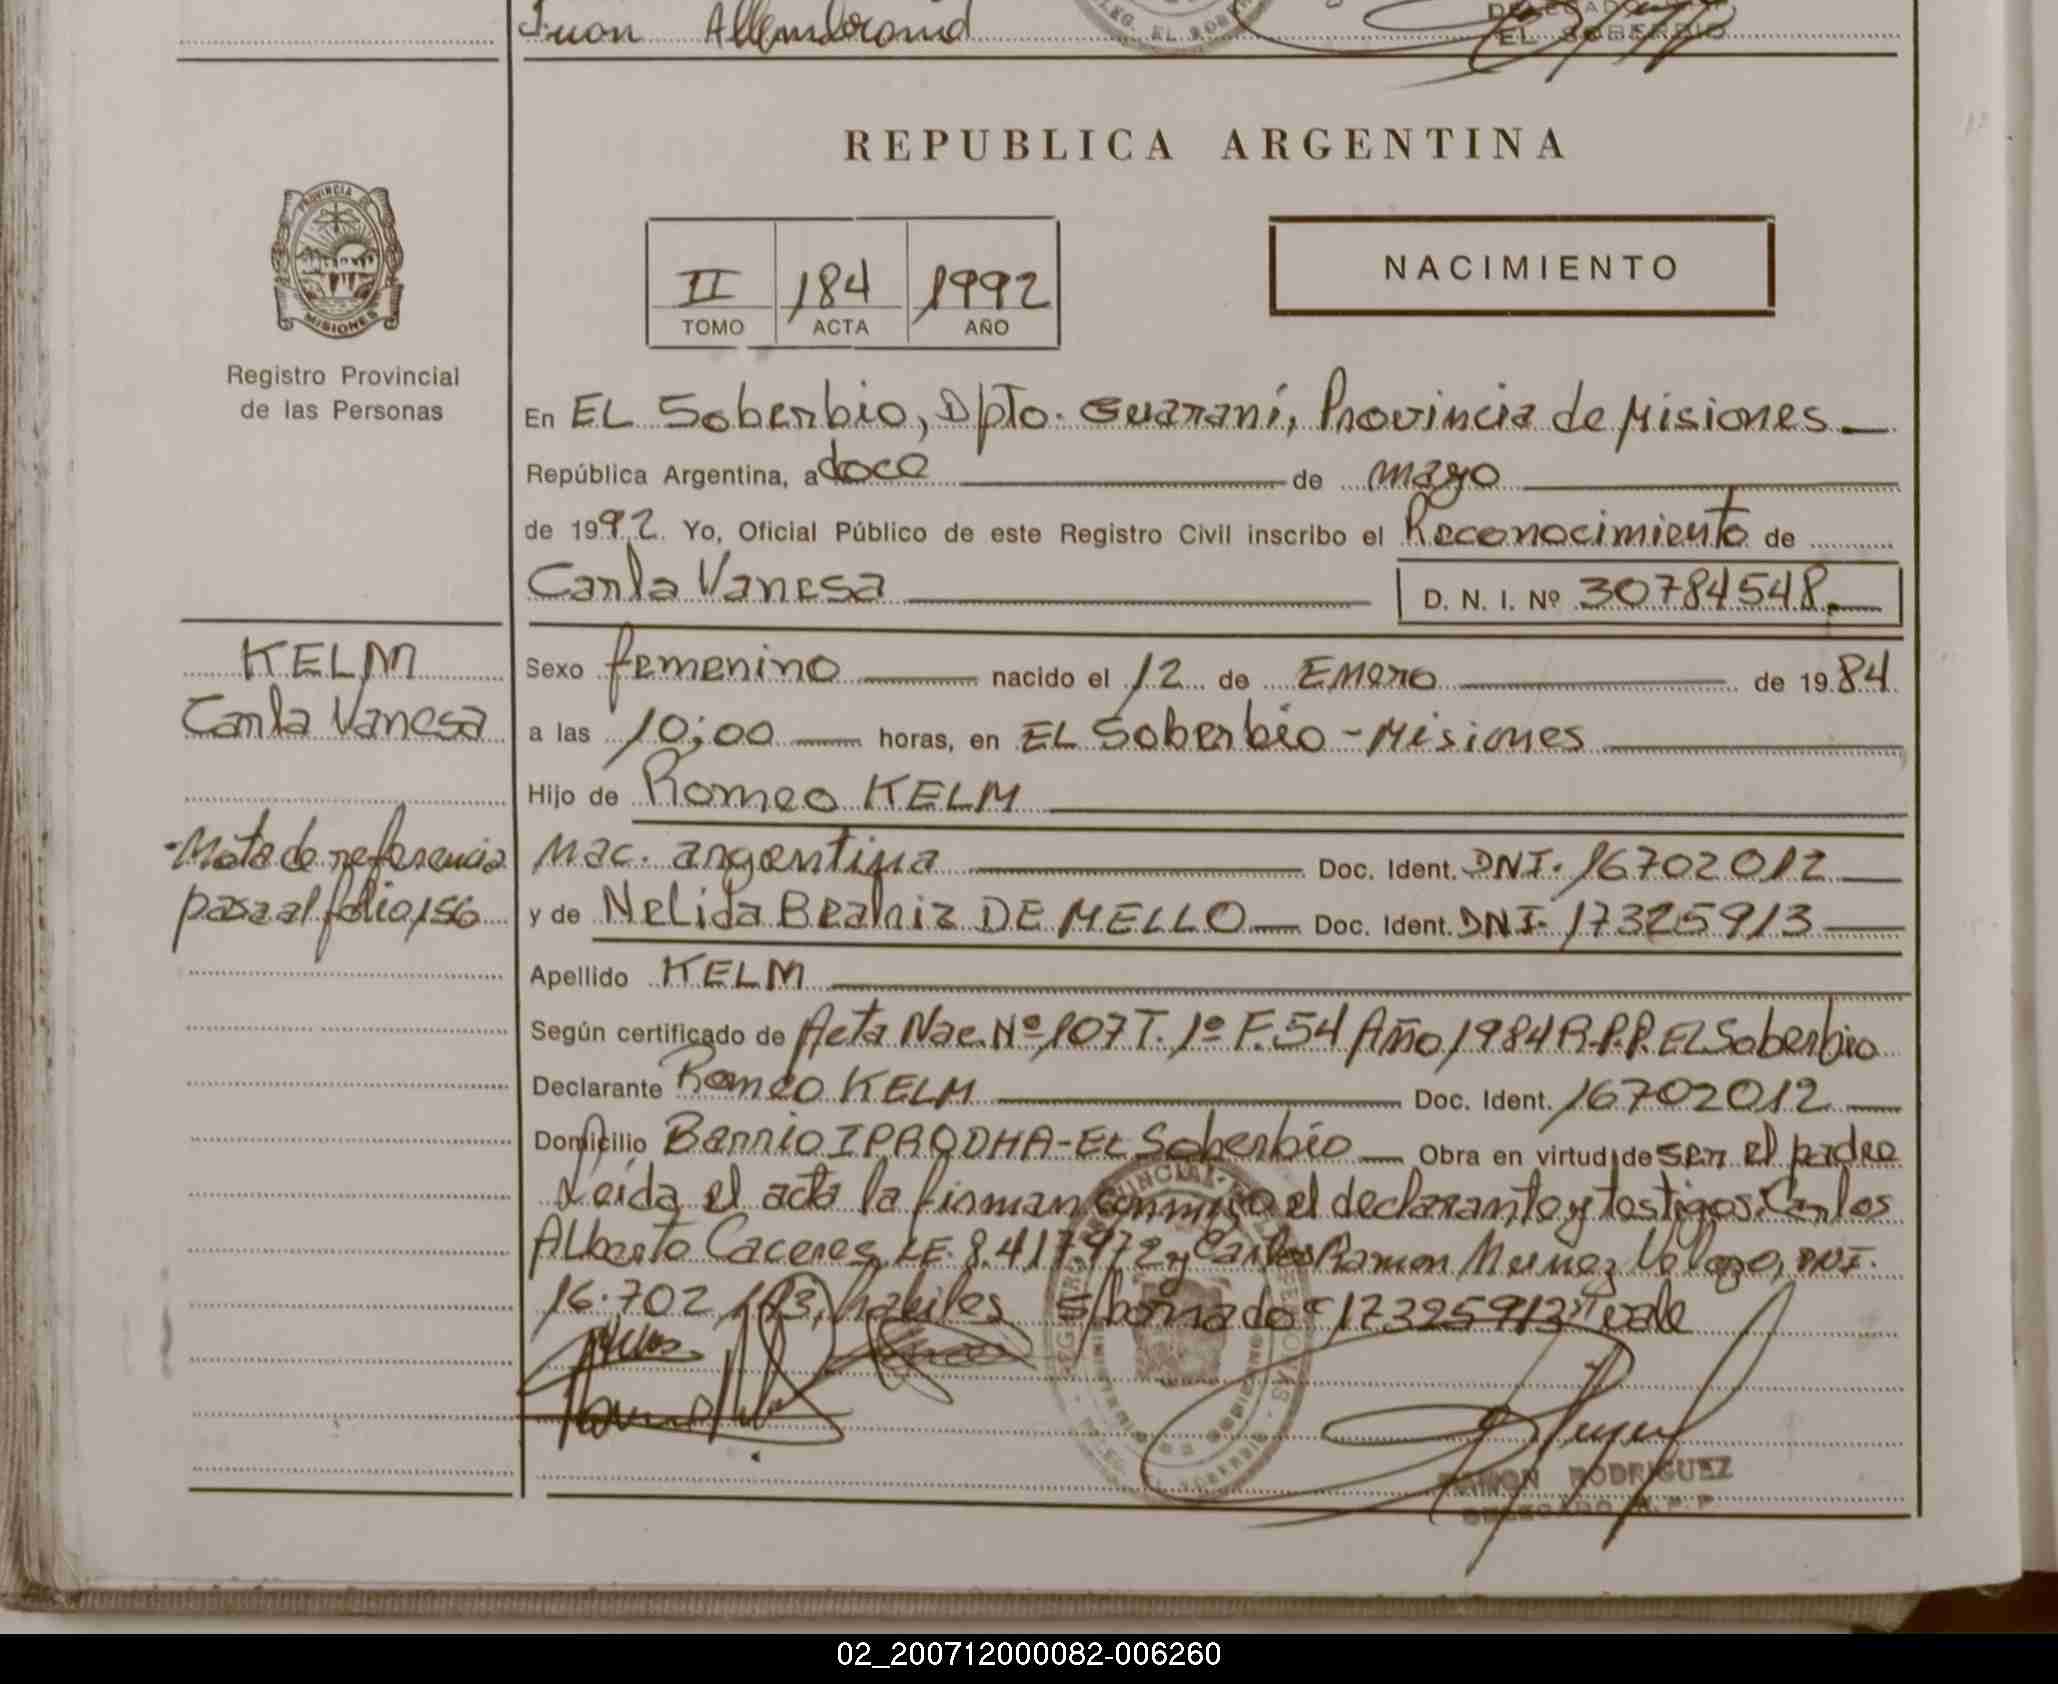 Juan
EL SOBERBIO
REPUBLICA ARGENTINA
PROVINCIA DE
MISIONES
Registro Provincial
de las Personas
II 184 1992
TOMO ACTA AÑO
NACIMIENTO
En EL Soberbio, Dpto. Guaraní, Provincia de Misiones
República Argentina, a doce de mayo
de 1992. Yo, Oficial Público de este Registro Civil inscribo el Reconocimiento de
Carla Vanesa D. N. I. Nº 30784548.
KELM
Carla Vanesa
Nota de referencia
pasa al folio 156
Sexo femenino nacido el 12 de Enero de 1984
a las 10:00 horas, en EL Soberbio - Misiones
Hijo de Romeo KELM
Nac. argentina Doc. Ident. DNI. 16702012
y de Nelida Beatriz DE MELLO Doc. Ident. DNI. 17325913
Apellido KELM
Según certificado de Acta Nac. Nº 107 T. 1º F. 54 Año 1984 R.P.P. EL Soberbio
Declarante Romeo KELM Doc. Ident. 16702012
Domicilio Barrio IPRODHA - EL Soberbio Obra en virtud de ser el padre
Leída el acta la firman conmigo el declarante y testigos: Carlos
Alberto Caceres, LE. 8.417.972 y Carlos Ramon Nuñez Velozo, DNI.
16.702 habiles S/borrado "17325913" vale
RAMON RODRIGUEZ
DELEGADO R. P. P
02_200712000082-006260